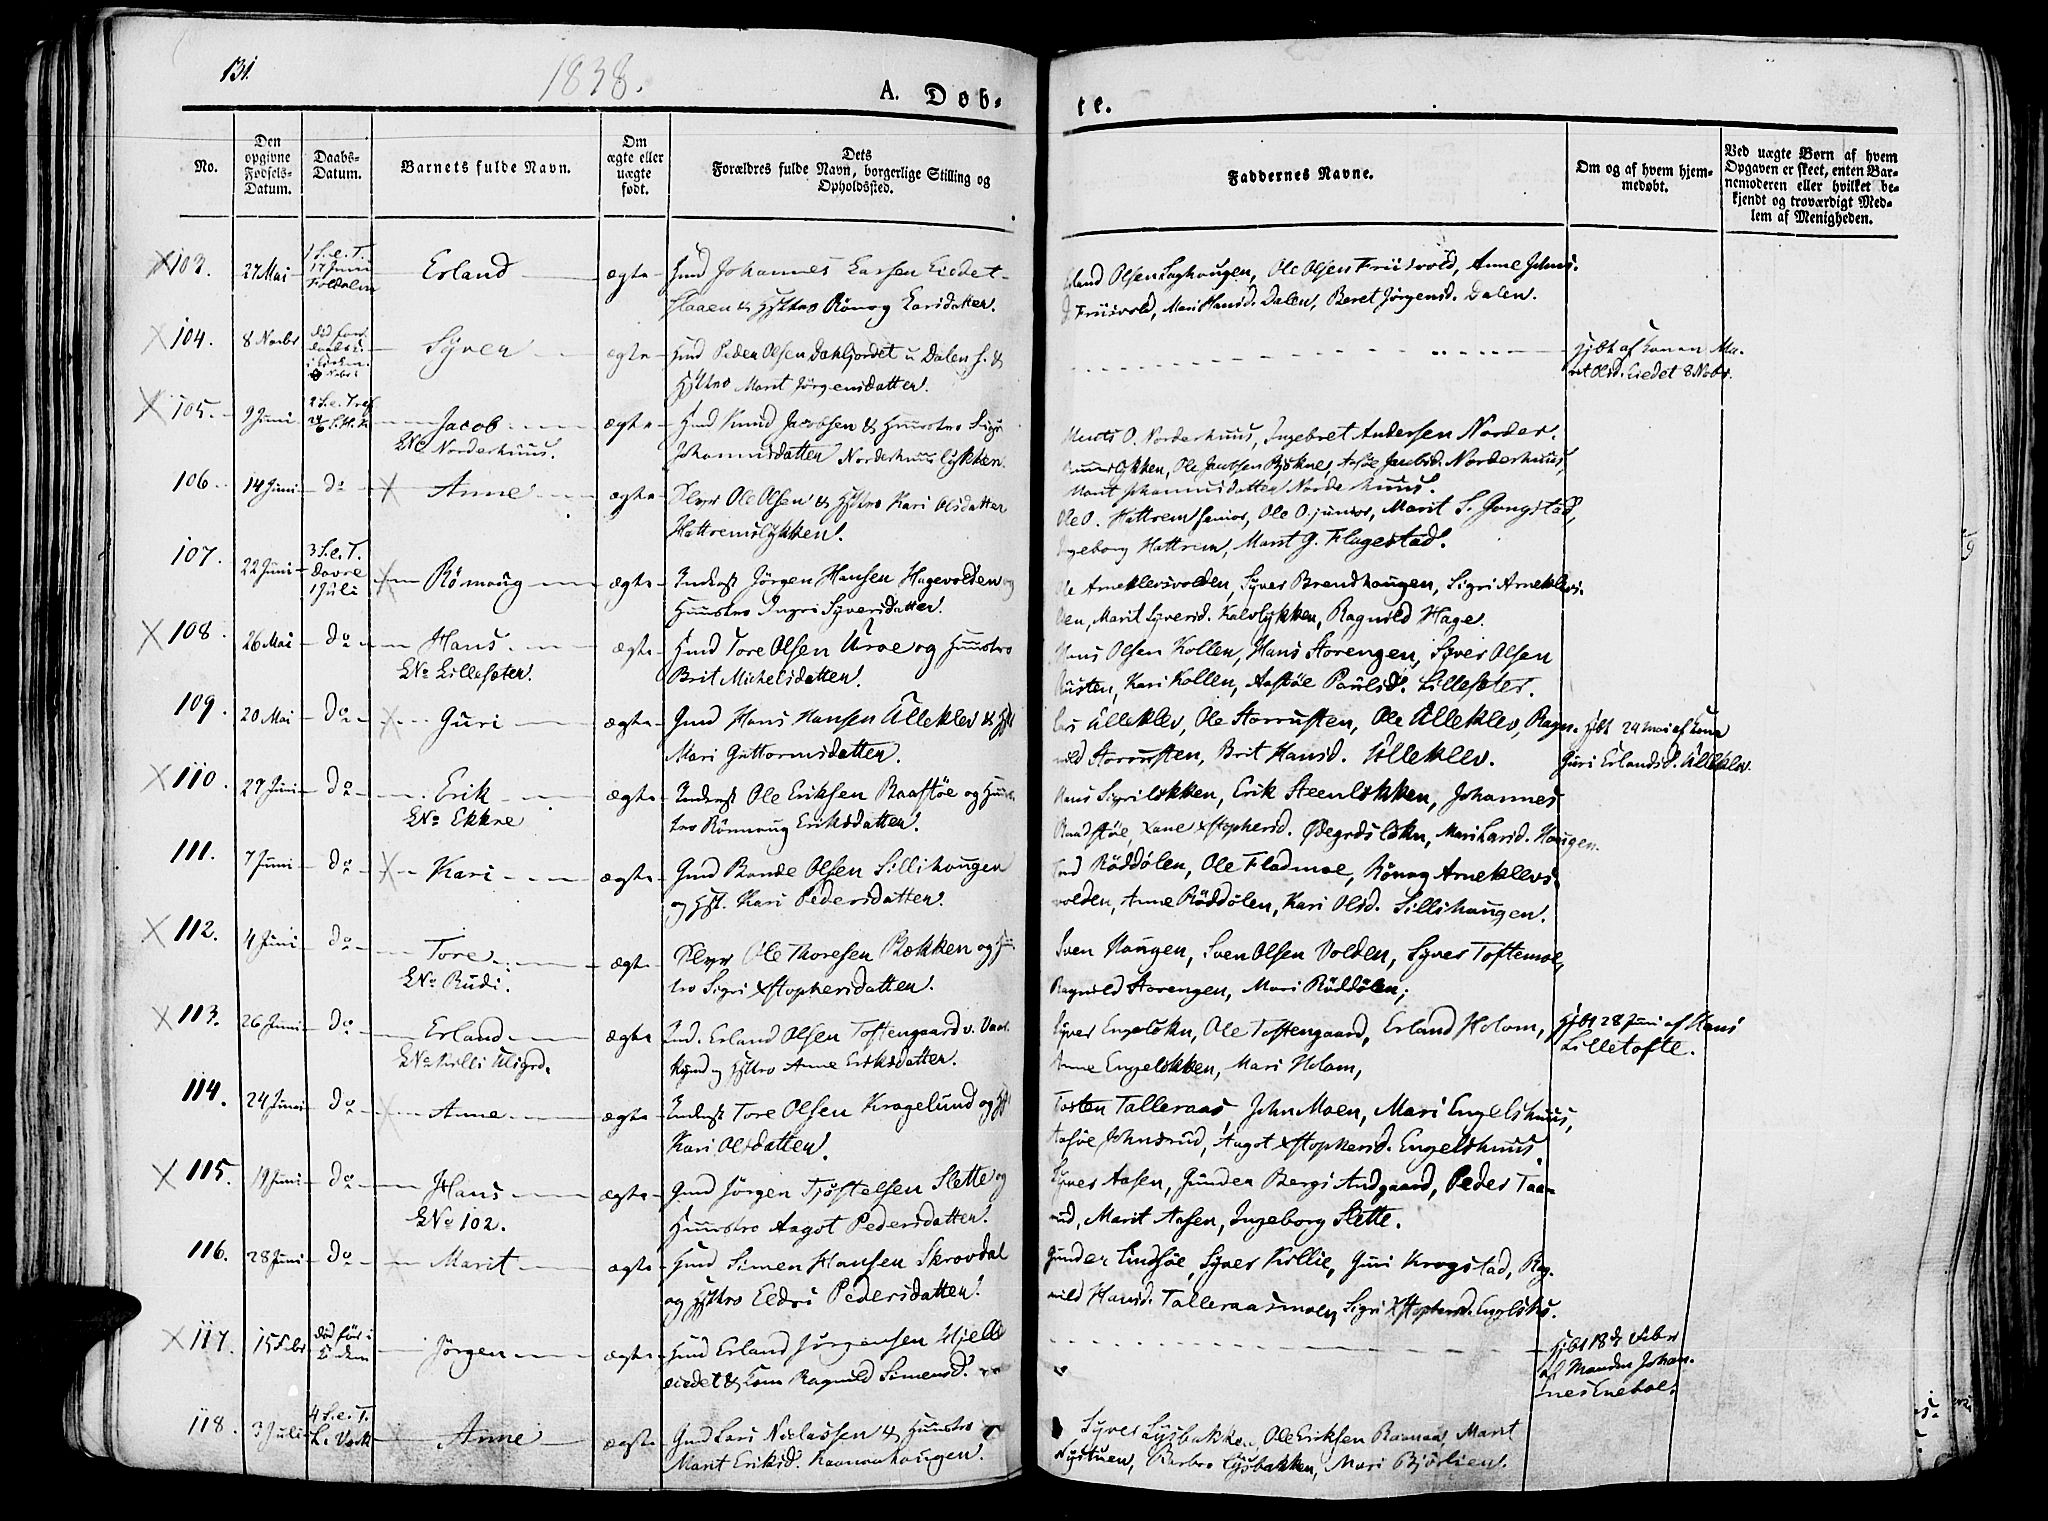 131.
1838.
A. Døb-
te.
No.
Den opgivne Fødsels-Datum.
Daabs-Datum.
Barnets fulde Navn.
Om ægte eller uægte født.
Dets Forældres fulde Navn, borgerlige Stilling og Opholdssted.
Faddernes Navne.
Om og af hvem hjem-medøbt.
Ved uægte Børn af hvem Opgaven er skeet, enten Bar-nemoderen eller hvilket be-kjendt og troværdigt Med-lem af Menigheden.
103. 27 Mai 1 S. e. T. 17 Juni Foldalen Erland ægte Gmd Johannes Larsen Eiedet-
Olsen Laghaugen, Ole Olsen Friisvold, Anne Johns.
& Hstro Rönog Larsdatter.
Friisvold, Mari Hansd. Dalen, Beret Jörgensd. Dalen.
104. 8 Novbr Syver ægte Hmd Peder Olsen Dahljordet u Dalen &
Hstro Marit Jörgensdatter.
hjbt af Konen Ma-
rit Olsd. Eiedet 8 Nobr.
105. 9 Juni 2 S. e. Tref Jacob ægte Hmd Knud Jacobsen & Huustro Sigri
ENo Norderhuus. Johannisdatter Norderhuuslykken.
O. Norderhuus, Ingebret Andersen Norder-
lykken, Ole Jacobsen Aasöe Jacobsd. Norderhuus
Marit Johannisdatter Norderhuus.
106. 14 Juni do Anne ægte Ole Olsen & Hstro Kari Olsdatter
Hattremslykken.
Ole O. Hattrem senior, Ole O. junior, Marit S. Gongstad,
Ingeborg Hattrem, Marit G. Flagestad.
107. 22 Juni 3 S. e. T. Dovre 1 Juli Rönnaug ægte Inderst Jörgen Hansen Hagevolden og
Huustro Ingri Syversdatter.
Ole Arneklevsvolden, Syver Brendhaugen, Sigri Arneklevs-
den, Marit Syversd. Kalvlykken, Ragnild Hage.
108. 26 Mai do Hans ægte Hmd Tore Olsen Uroe og Huustro
ENo Lillesæter. Brit Michelsdatter.
Hans Olsen Kollen, Hans Storengen, Syver Olsen
Rusten, Kari Kollen, Aasöe Paulsd. Lillesæter.
109. 20 Mai do Guri ægte Gmd Hans Hansen Ulleklev & Hst
Mari Guttormsdatter.
Lars Ulleklev, Ole Storrusten, Ole Ulleklev, Ragn-
nild Storrusten, Brit Hansd. Ulleklev.
hjbt 24 Mai af Kone
Guri Erlandsd. Ulleklev.
110. 27 Juni do Erik ægte Inderst Ole Eriksen Baastöe og Huus-
ENo Ekkre tro Rönnaug Eriksdatter.
Hans Sigrilökken, Erik Steenlökken, Johannes
Baadstöe, Xstophersd. Mari Larsd. Haugen.
111. 7 Juni do Kari ægte Gmd Bonde Olsen Sillihaugen
og Hst. Kari Pedersdatter.
Tord Röddölen, Ole Fladmoe, Rönog Arneklevs-
volden, Anne Röddölen, Kari Olsd. Sillihaugen.
112. 4 Juni do Tore ægte Ole Thoresen Bækken og Huus-
ENo Rudi. tro Sigri Xstophersdatter.
Sven Haugen, Sven Olsen Volden, Syver Toftemoe,
Ragnild Storengen, Mari Röddölen;
113. 26 Juni do Erland ægte Ind. Erland Olsen Toftengaard
og Hstro Anne Eriksdatter.
Syver Engelökn, Ole Toftengaard, Erland Holom,
Anne Engelökken, Mari Holom,
hjbt 28 Juni af Hans
Lilletofte.
114. 24 Juni do Anne ægte Inderst Tore Olsen Kragelund og Hst
Kari Olsdatter.
Tosten Talleraas, John Moen, Mari Engelshuus,
Aasöe Johnsrud, Aagot Xstophersd. Engelshuus.
115. 19 Juni do Hans ægte Gmd Jörgen Tjöstelsen Slette og
ENo 102. Huustro Aagot Pedersdatter.
Syver Aasen, Gunder Bergs Andgaard, Peder Taa-
rud, Marit Aasen, Ingeborg Slette.
116. 28 Juni do Marit ægte Hmd Simen Hansen Skrovdal
og Hstro Eldri Pedersdatter.
Gunder Lindsöe, Syver Killie, Guri Krogstad, Rag-
nild Hansd. Talleraasmoen, Sigri Xstophersd.
117. 15 Febr död för i Jörgen ægte Hmd Erland Jörgensen Hjelle
eiedet & Kone Ragnild Simensd.
hjbt 18de Febr
af Manden Johan-
nes Eneboe.
118. 3 Juli 4 S. e. T. Anne ægte Gmd Lars Niclassen & Huustro
Marit Eriksd. Raanaahaugen.
Syver Lysbakken, Ole Eriksen Raanaa, Marit
Nystuen, Barbro Lysbakken, Mari Björlien.